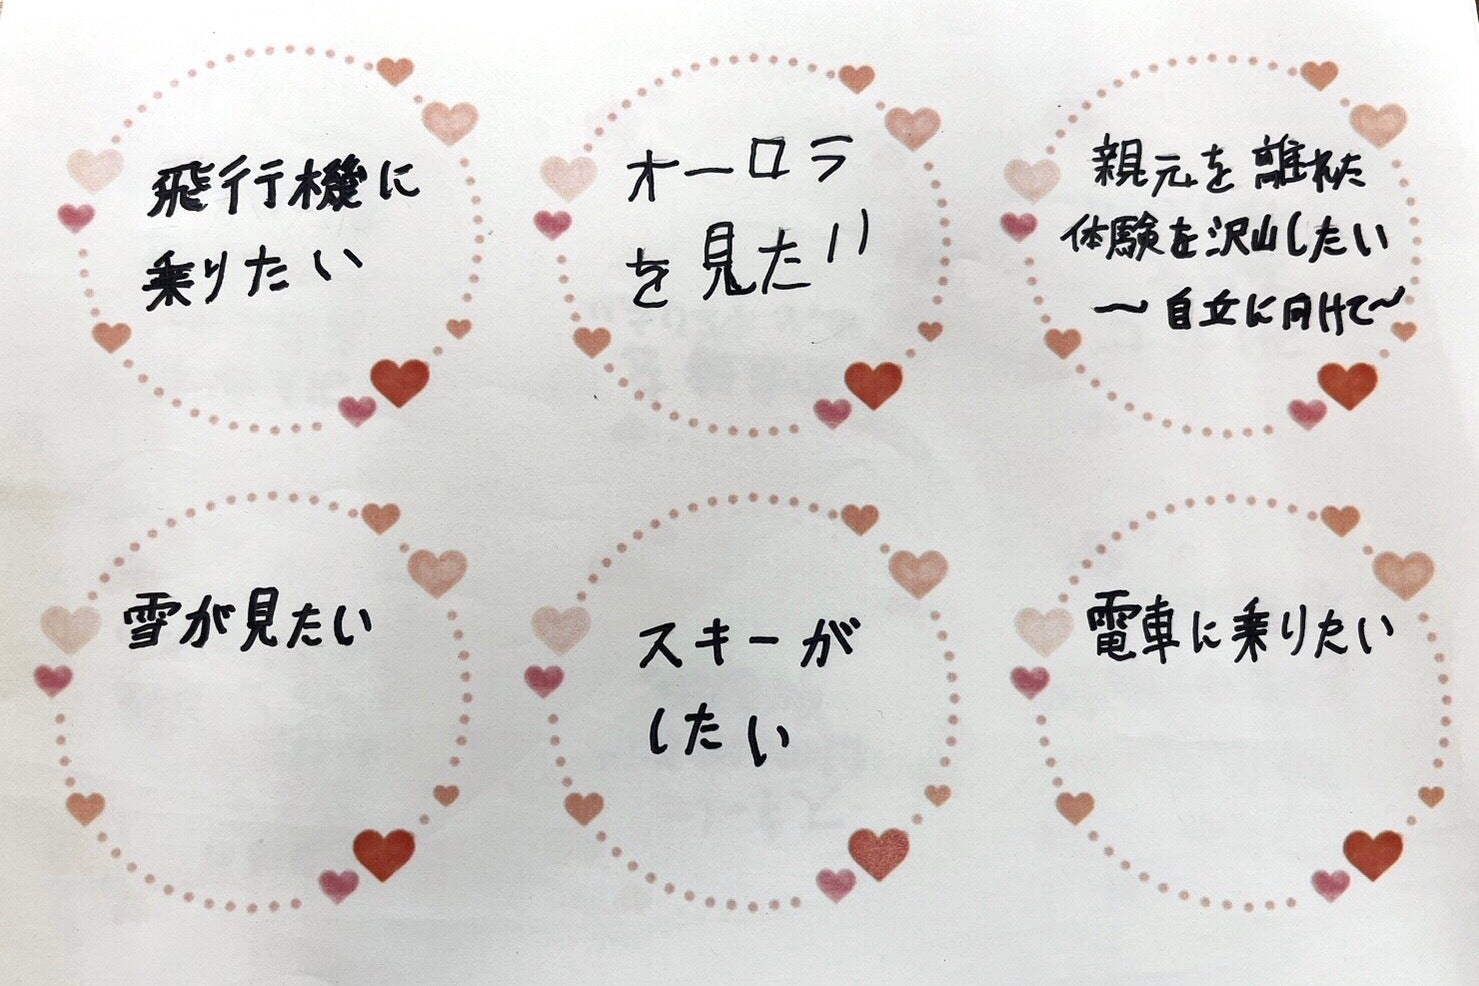 飛行機に
乗りたい
オーロラ
を見たい
親元を離れた
体験を沢山したい
〜自立に向けて〜
雪が見たい
スキーが
したい
電車に乗りたい